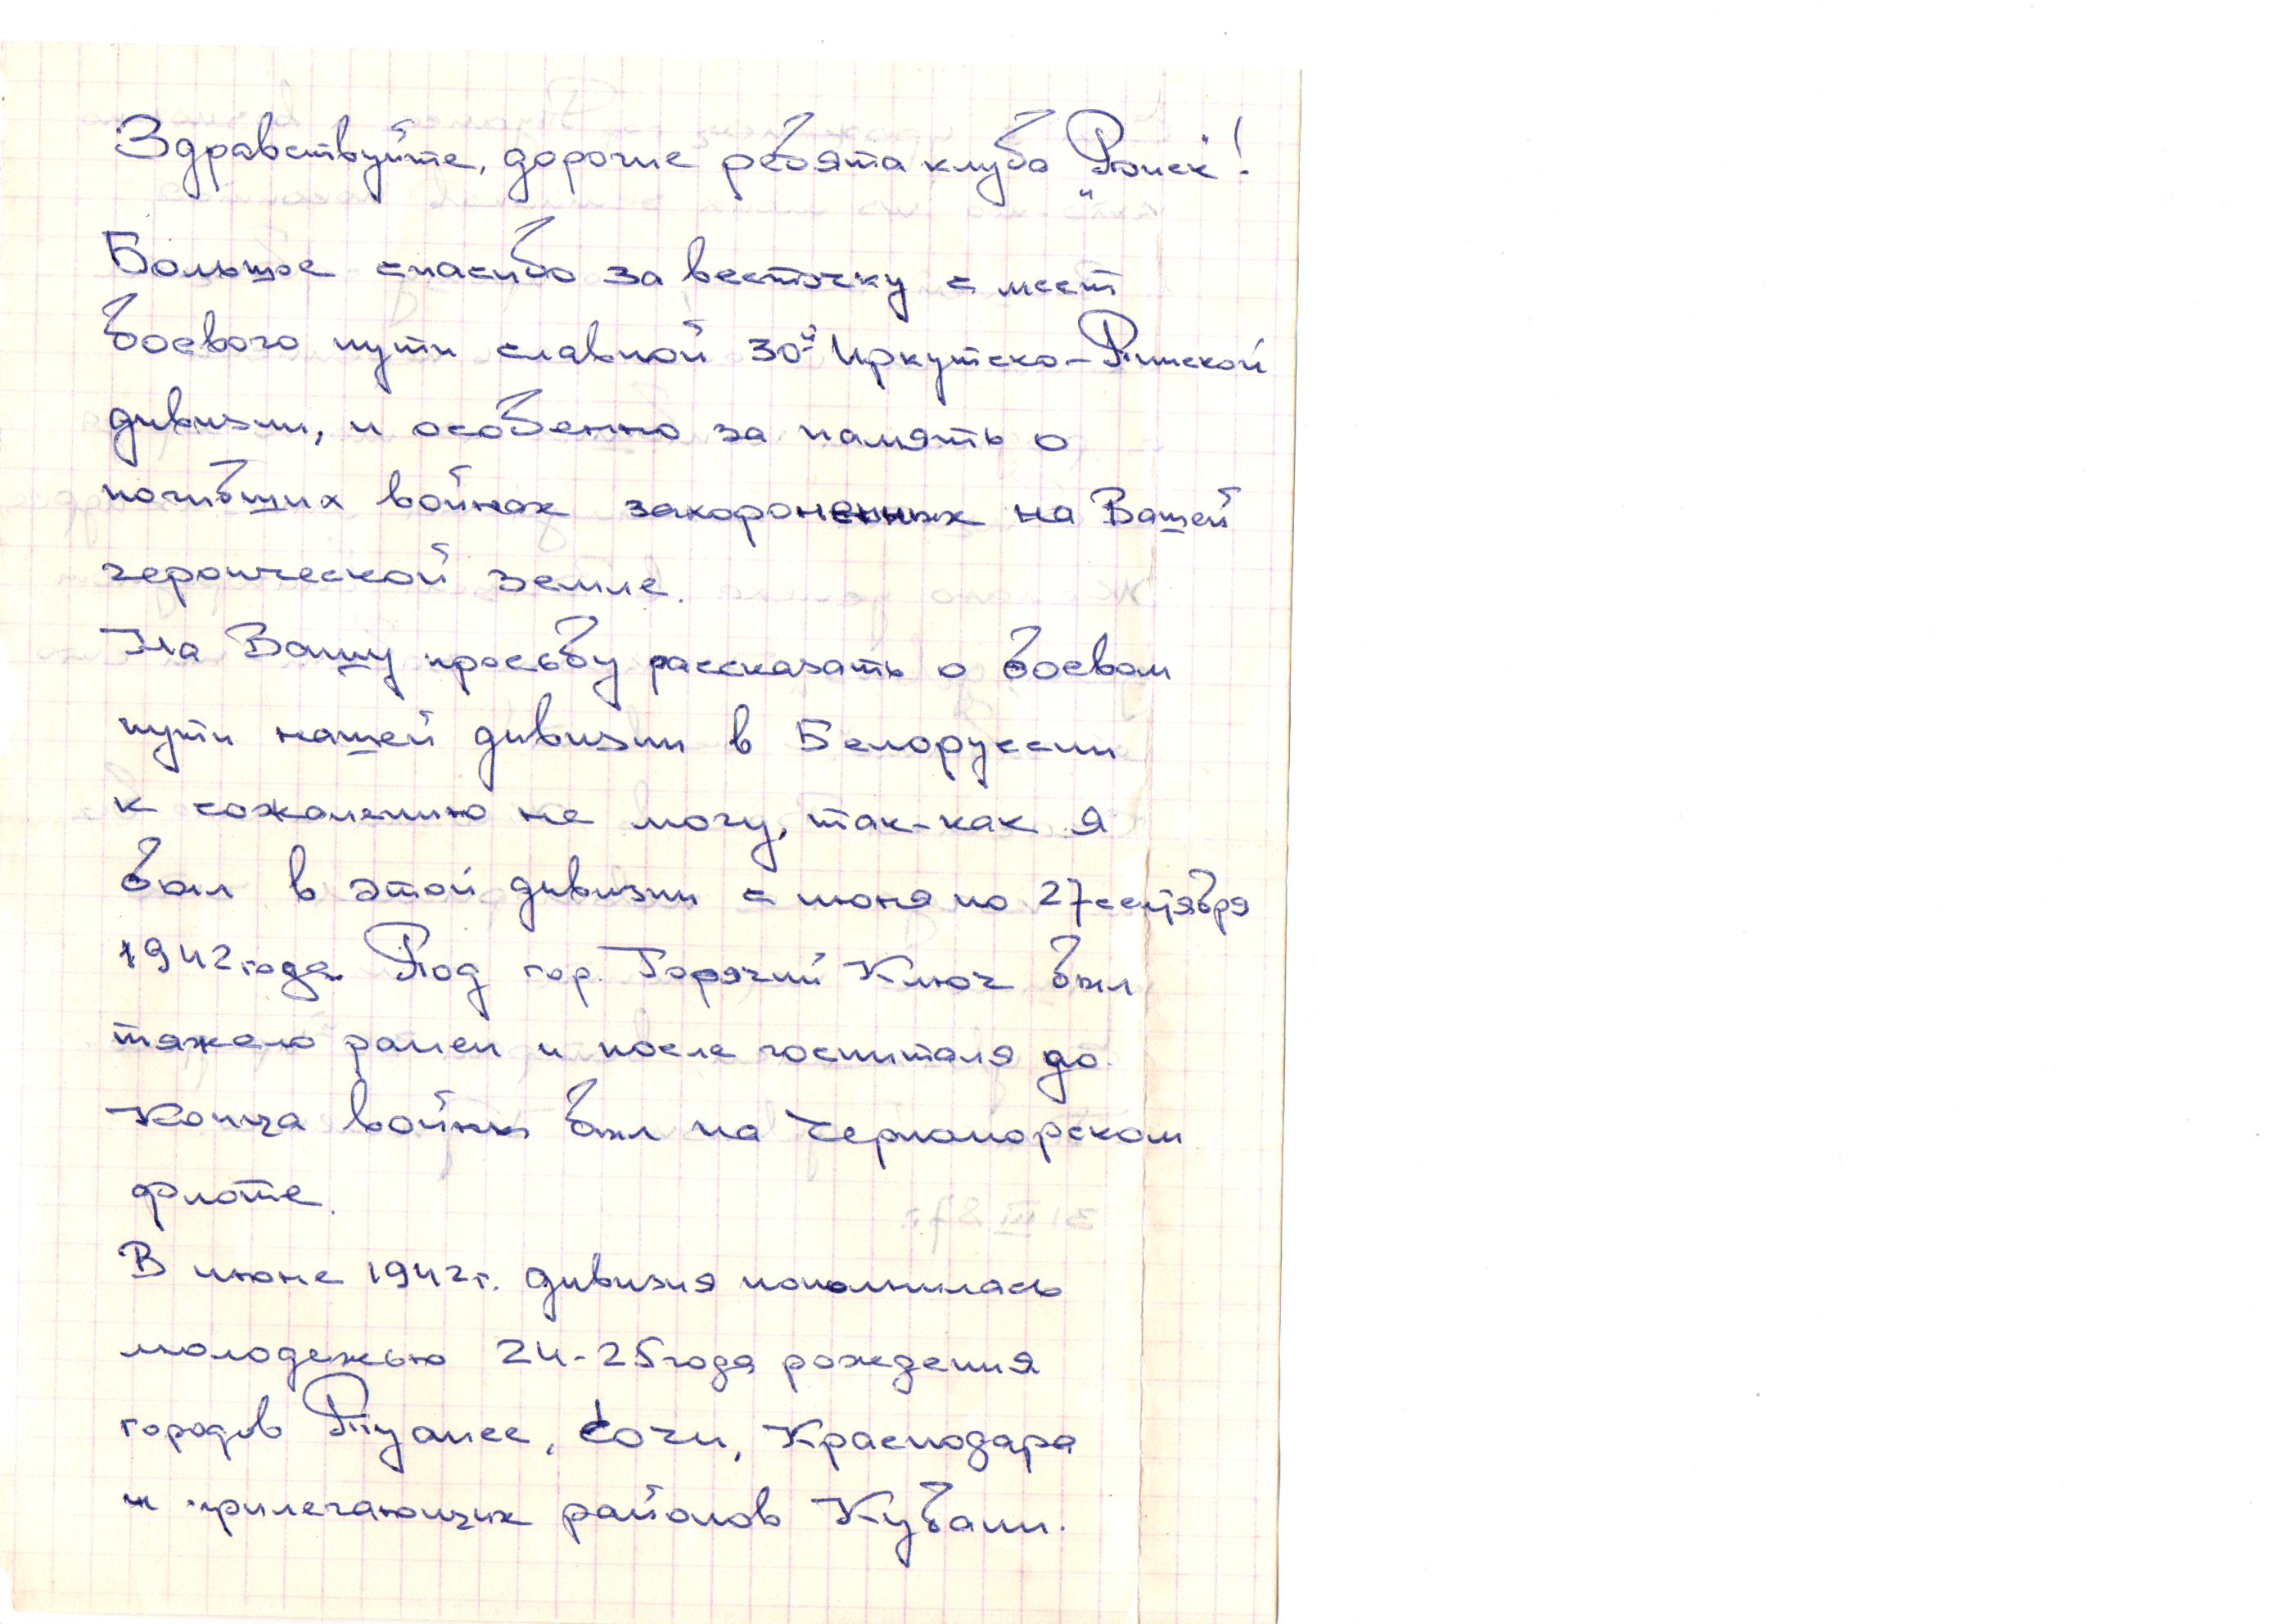 Здравствуйте, дорогие ребята клуба „Поиск"!
Большое спасибо за весточку с мест
боевого пути славной 30й Иркутско-Пинской
дивизии, и особенно за память о
погибших войнах захороненных на Вашей
героической земле.
На Вашу просьбу рассказать о боевом
пути нашей дивизии в Белоруссии
к сожалению не могу, так-как я
был в этой дивизии с июня по 27 сентября
1942 года. Под гор. Горячий Ключ был
тяжело ранен и после госпиталя до
конца войны был на Черноморском
флоте.
В июне 1942 г. дивизия пополнилась
молодежью 24-25 года рождения
городов Туапсе, Сочи, Краснодара
и прилегающих районов Кубани.